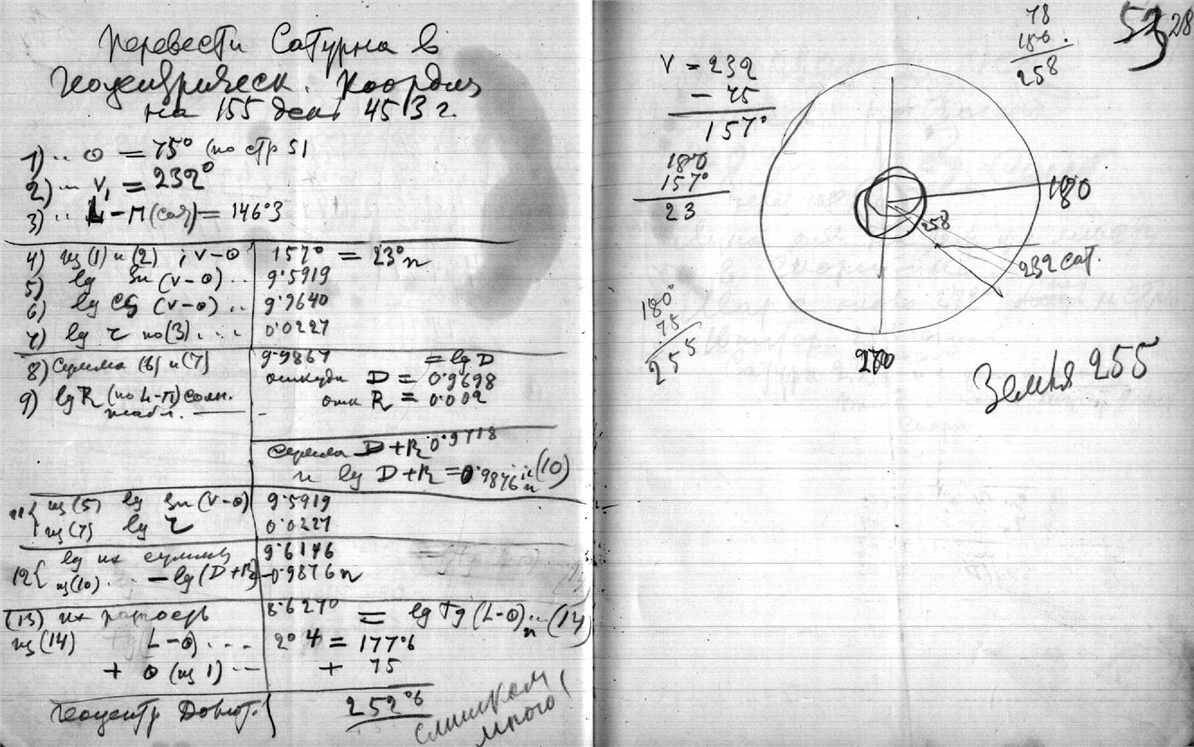 Перевести Сатурна в
Геоцентрическ. Координ
на 155 день 4513 г.
1) .. ⊙ = 75° (по стр 51
2) .. V₁ = 232°
3) .. L-П (сат) = 146°3
4) из (1) и (2) ; V-⊙ 157° = 23°n
5) lg Sn (V-⊙) .. 9.5919
6) lg CS (V-⊙) .. 9.9640
7) lg r по (3) .... 0.0227
8) Сумма (6) и (7) 9.9867 = lg D
откуда D = 0.9698
9) lg R (по L-П) солн. R = 0.002
Сумма D+R 0.9718
и lg D+R = 0.9876 n (10)
11 { из (5) lg Sn (V-⊙) 9.5919
из (7) lg r 0.0227
lg их суммы 9.6146
12 { из (10) .. - lg (D+R) -0.9876 n
(13) их разность 8.6270 = lg tg (L-⊙) n .. (14)
из (14) L-⊙) ... 2°4 = 177°6
+ ⊙ (из 1) ... + 75
геоцентр Долгот. 252°6
слишком
много!
53 28
78
180.
258
V = 232
- 75
157°
180
157°
23
180
258
232 сат.
180°
75
255
270
Земля 255